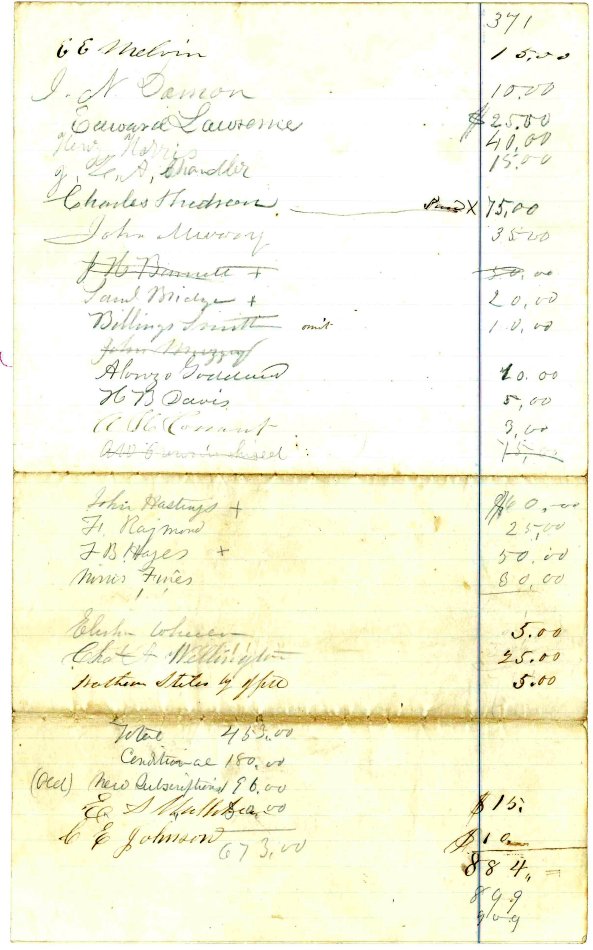 371
C E Melvin 15.00
J. N. Damon 10.00
Edward Lawrence $25.00
Henry Norris 40.00
J, L, A, Chandler 15.00
Charles Hudson Paid X 75,00
John Murray 35 00
J H Barrett + 50,00
Saml Bridge + 20,00
Billings Smith omit 10,00
John Muzzey
Alonzo Goddard 10.00
H B Davis 5,00
3,00
15,
John Hastings + 60,00
F. Raymond 25,00
F B Hayes + 50.00
80,00
Elisha 5.00
Chas A Wellington 25.00
5.00
Total 453.00
Conditional 180.00
(Ocd) New Subscriptions 96.00
E. S
$15.
C E Johnson $10
673.00
884,, =
899
909